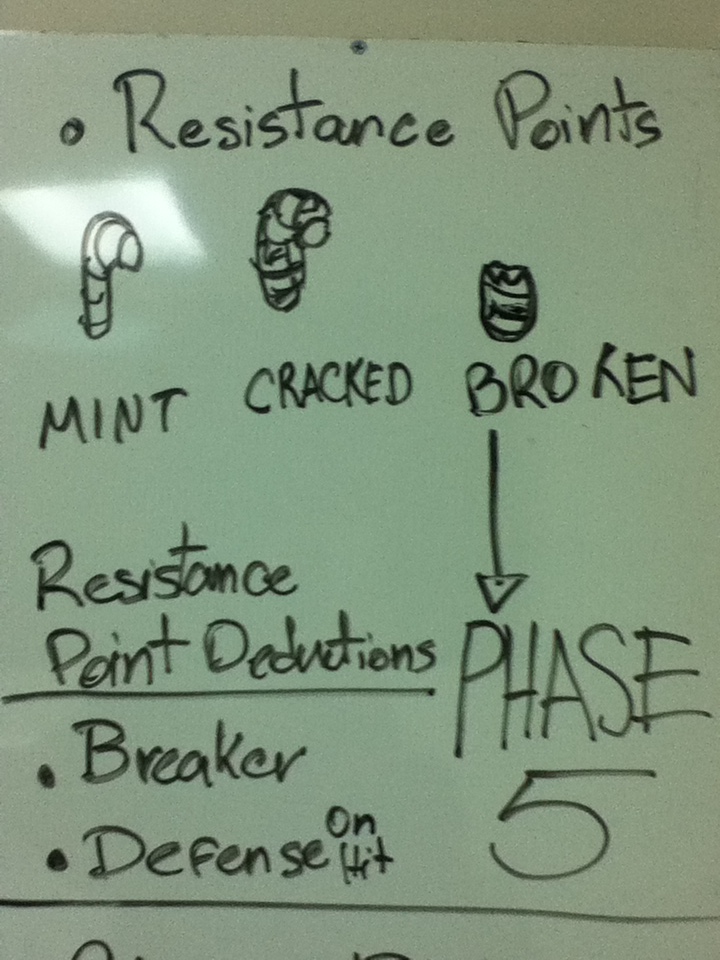 • Resistance Points
MINT CRACKED BROKEN
Resistance
Point Deductions
• Breaker
• Defense On Hit
PHASE
5